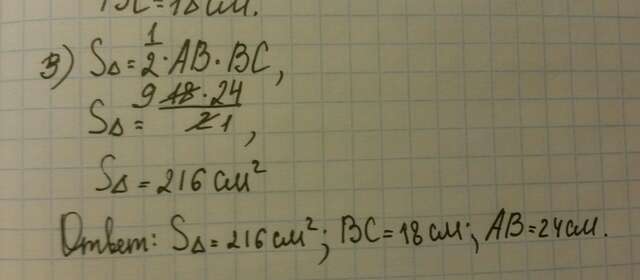 BC=18 см.
3) S∆=1/2·AB·BC,
S∆= 9 18·24/2 1,
S∆=216 см²
Ответ: S∆=216 см²; BC=18 см; AB=24 см.